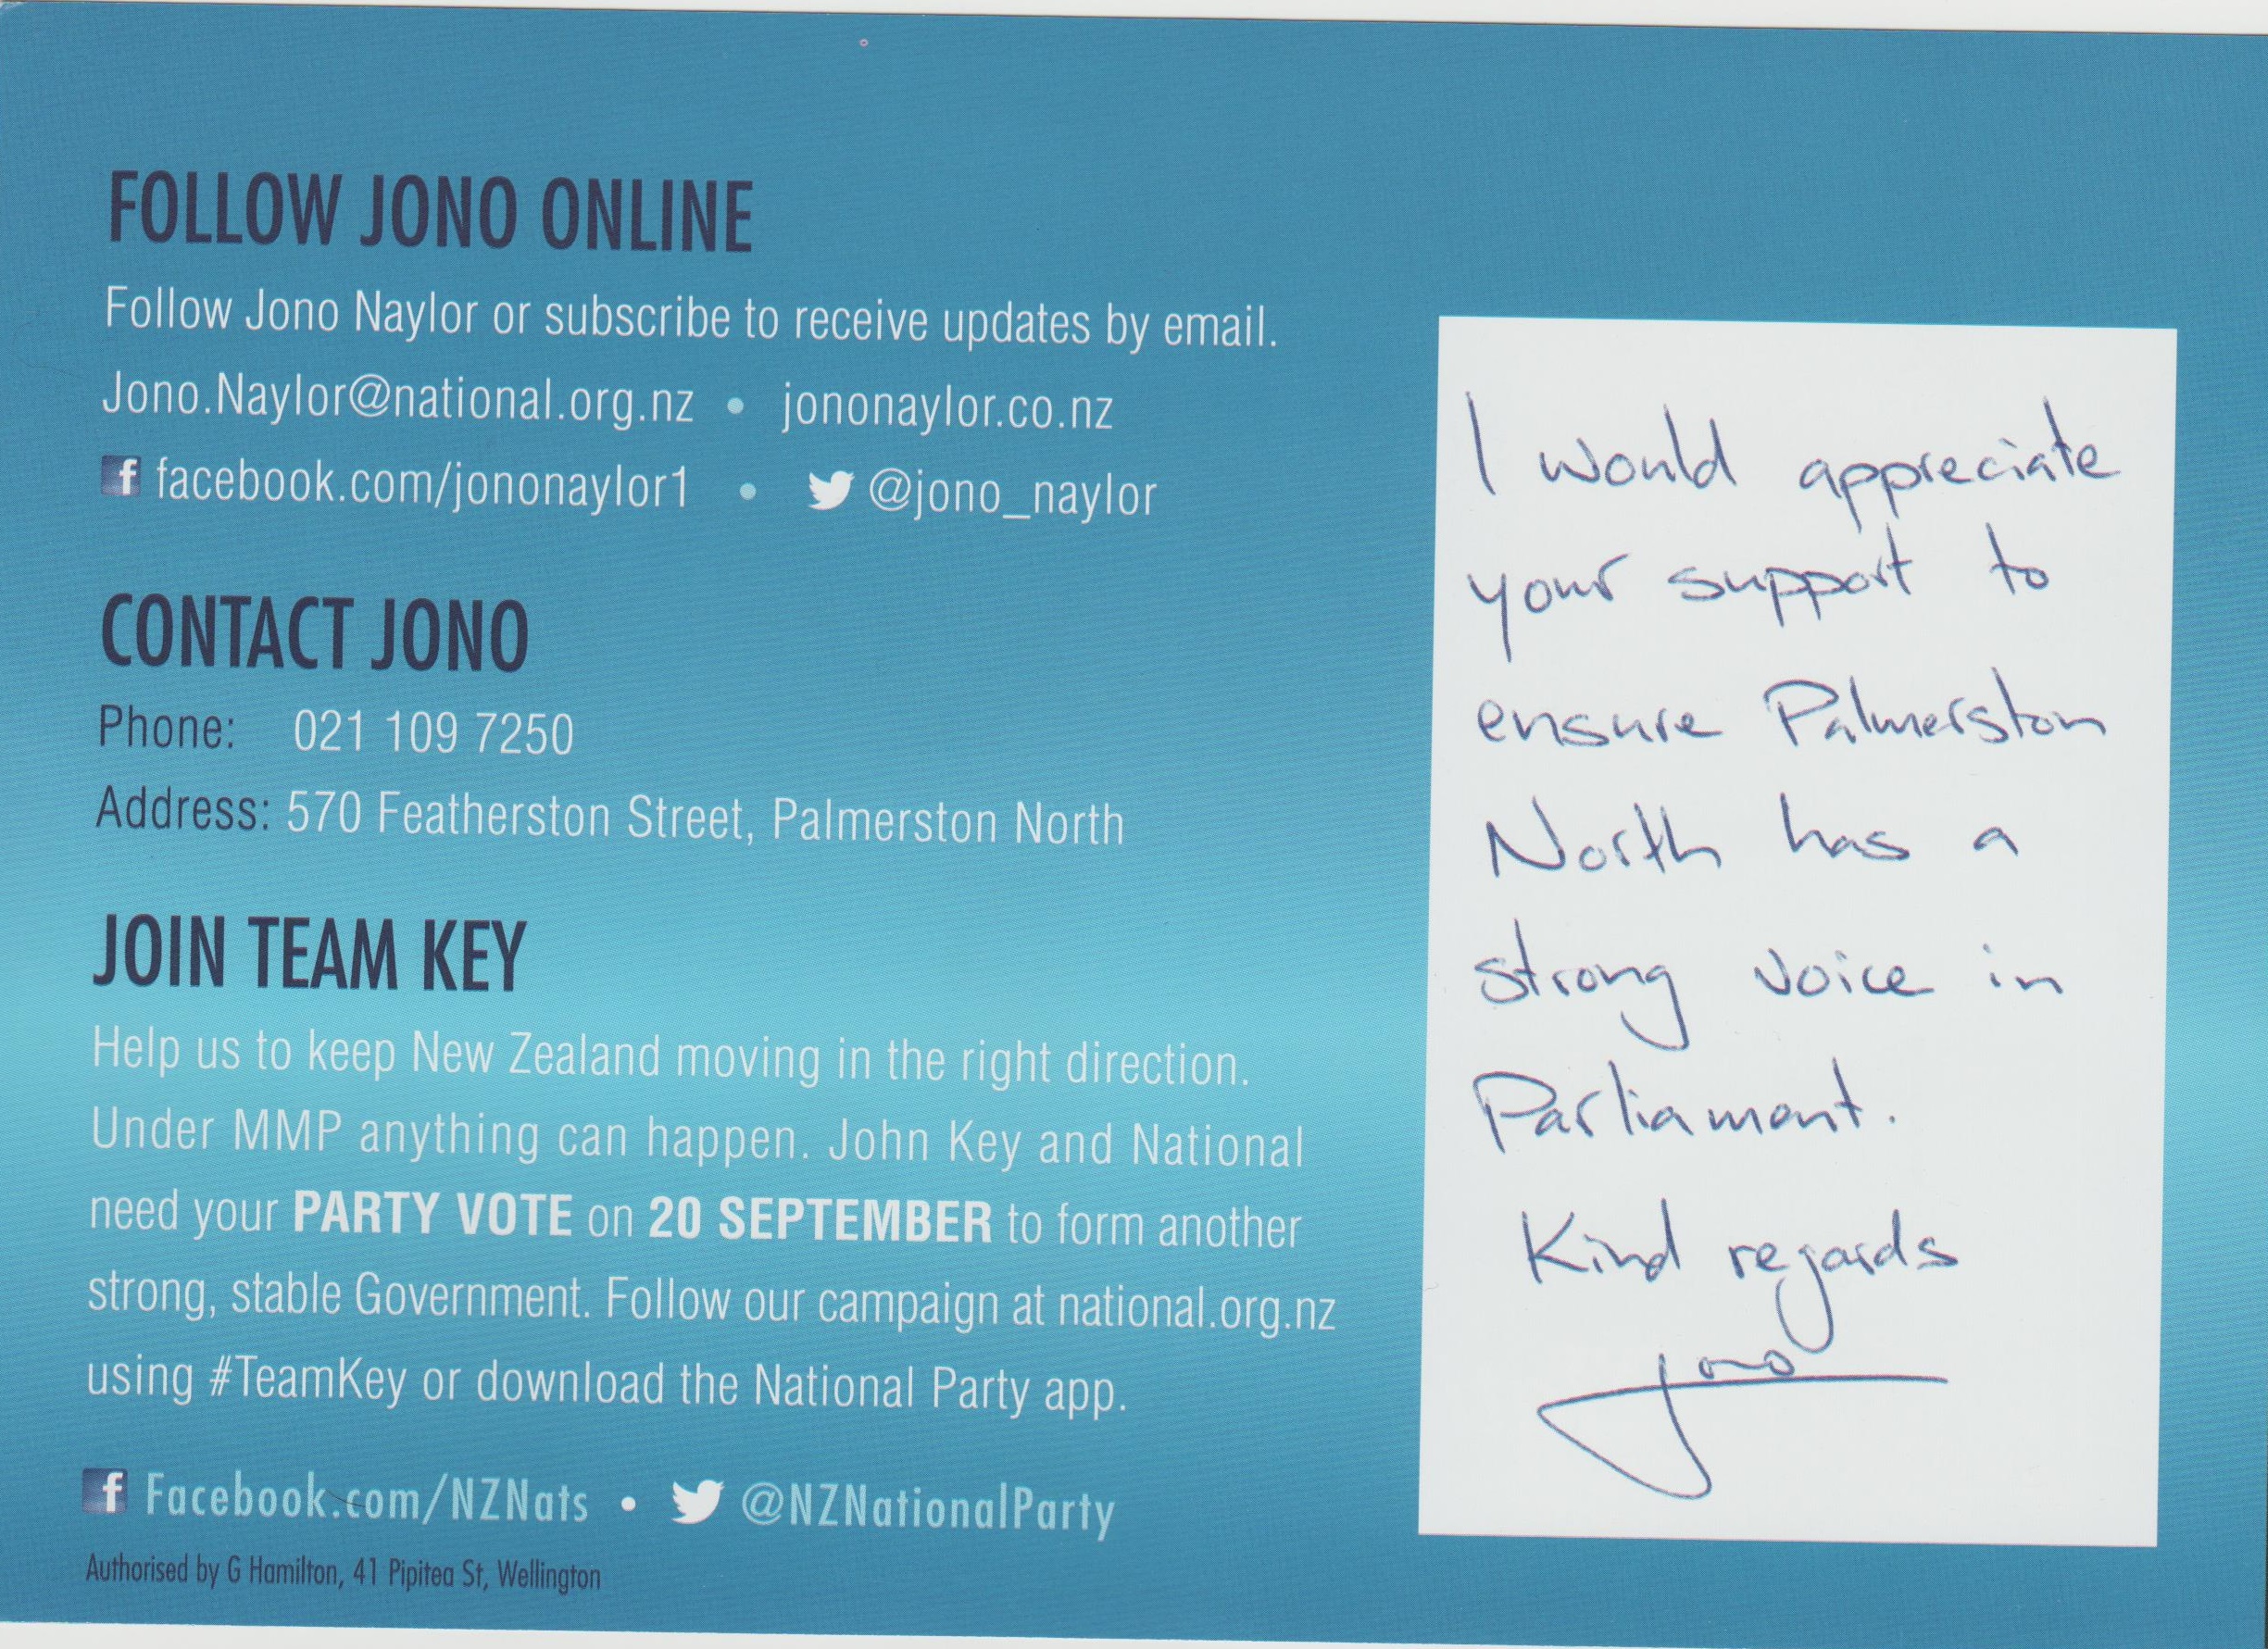 FOLLOW JONO ONLINE
Follow Jono Naylor or subscribe to receive updates by email.
Jono.Naylor@national.org.nz • jononaylor.co.nz
f facebook.com/jononaylor1 • @jono_naylor
CONTACT JONO
Phone: 021 109 7250
Address: 570 Featherston Street, Palmerston North
JOIN TEAM KEY
Help us to keep New Zealand moving in the right direction.
Under MMP anything can happen. John Key and National
need your PARTY VOTE on 20 SEPTEMBER to form another
strong, stable Government. Follow our campaign at national.org.nz
using #TeamKey or download the National Party app.
f Facebook.com/NZNats • @NZNationalParty
Authorised by G Hamilton, 41 Pipitea St, Wellington
I would appreciate
your support to
ensure Palmerston
North has a
strong voice in
Parliament.
Kind regards
Jono